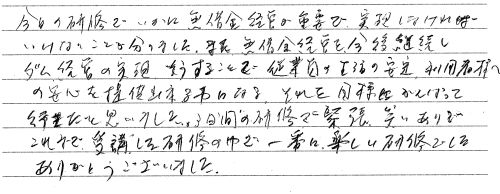 今日の研修で いかに無借金経営が重要で 実現しなければ
いけないことが分りました。 無借金経営を今後継続し
ダム経営の実現 そうすることで 従業員の生活の安定、利用者様へ
の安心を提供出来る布になる それを目標にがんばって
行きたいと思いました。3日間の研修で緊張、笑いありで
これまで受講した研修の中で 一番に楽しい研修でした
ありがとうございました。